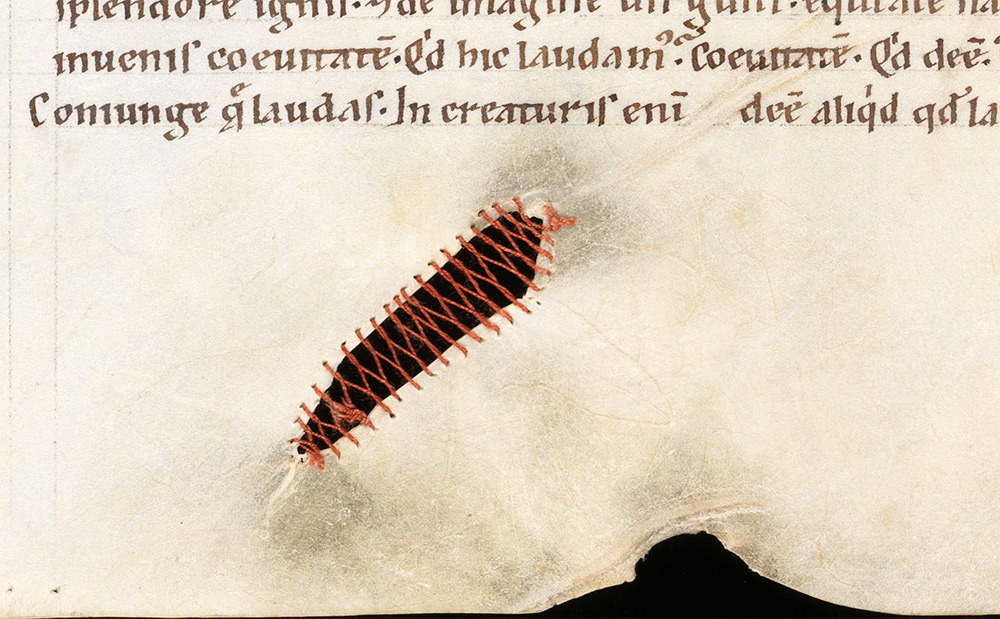 splendore ignis.
inuenis coeuitatē. Qd hic laudam᷒. Coeuitatē. Qd deē.
Coniunge q̄ laudas. In creaturis enī deē aliqd qd la